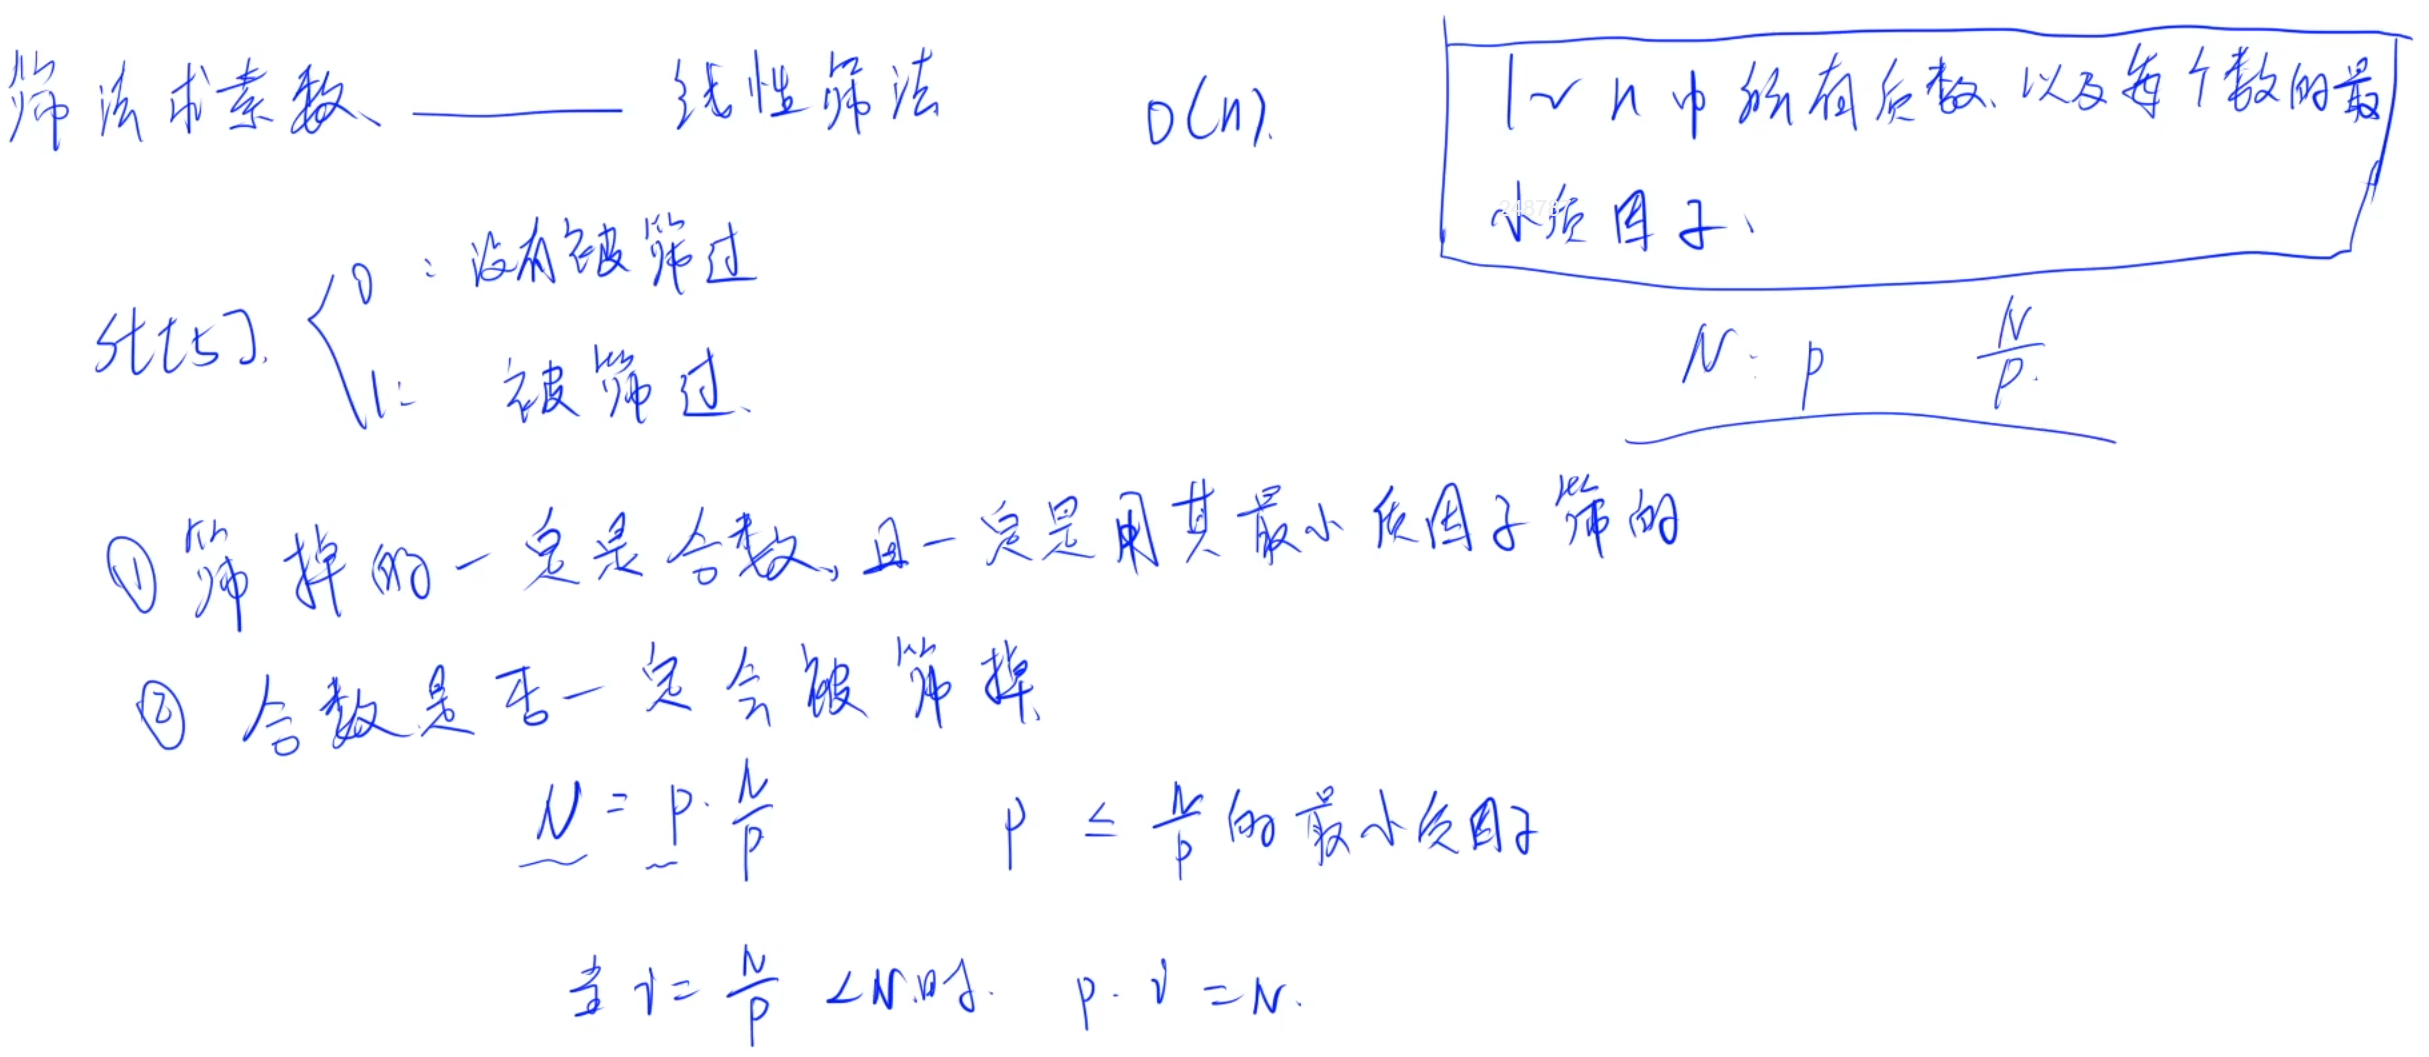 筛法求素数、——— 线性筛法 O(n).
1~n中所有质数、以及每个数的最
小质因子、
st[5]. 0:没有被筛过
1: 被筛过、
N: p N/p.
① 筛掉的一定是合数,且一定是用其最小质因子筛的
② 合数是否一定会被筛掉、
N = p · N/p p ≤ N/p 的最小质因子
当 i = N/p < N时. p · i = N.